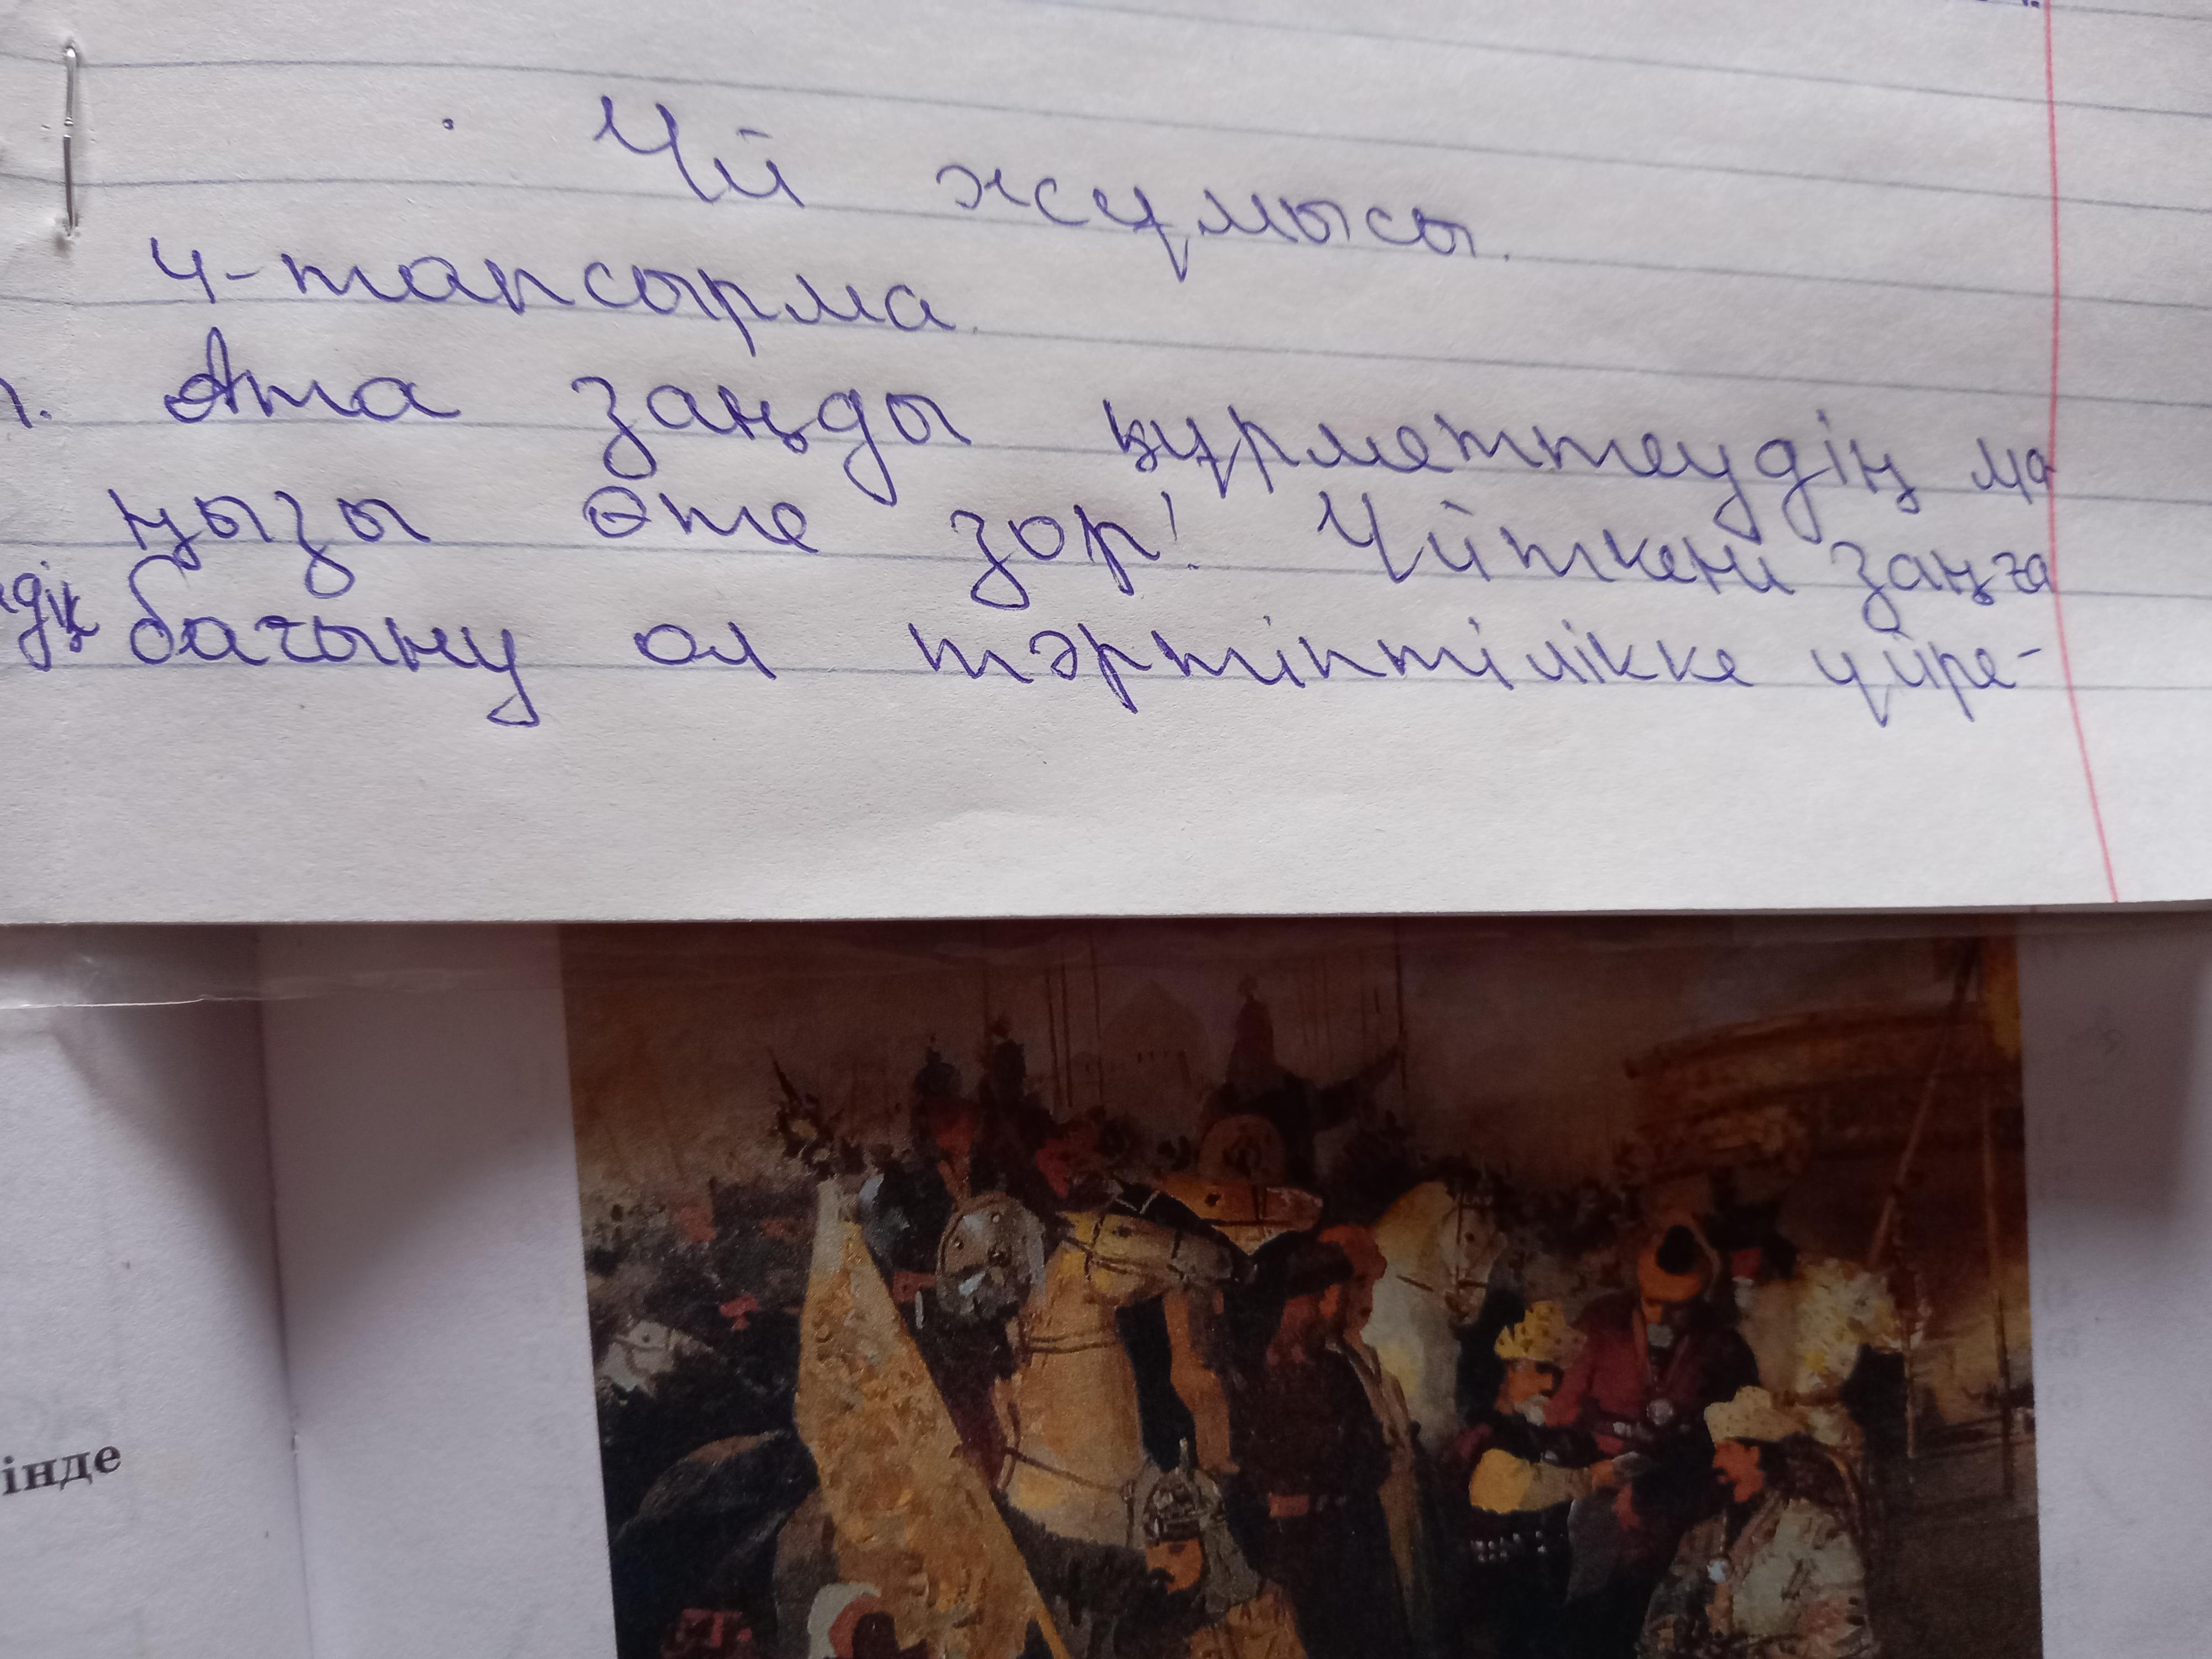 Үй жұмысы.
4-тапсырма.
Ата заңды құрметтеудің ма
ңызы өте зор! Үйткені заңға
бағыну ол тәртіптілікке үйре-
інде